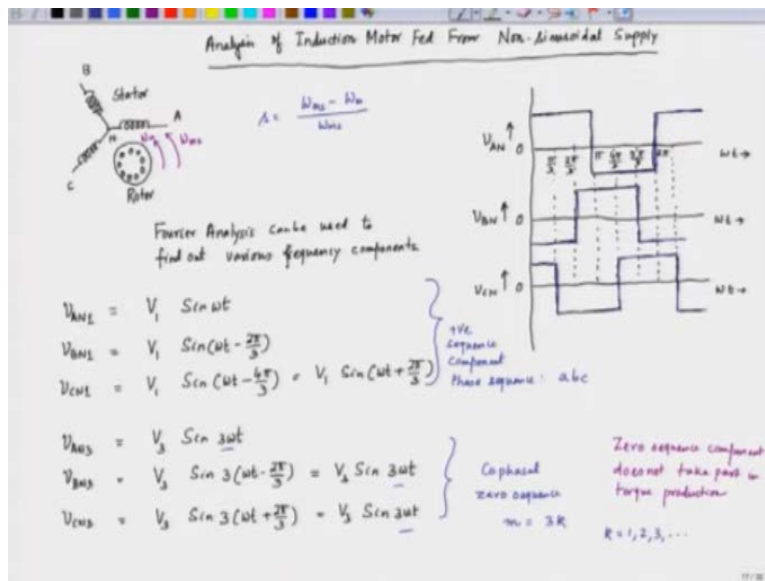 Analysis of Induction Motor Fed From Non-Sinusoidal Supply
B
Stator
A
N
ωm
ωms
C
Rotor
s = (ωms - ωm) / ωms
Fourier Analysis can be used to
find out various frequency components
VAN1 = V1 Sin ωt
VBN1 = V1 Sin(ωt - 2π/3)
VCN1 = V1 Sin(ωt - 4π/3) = V1 Sin(ωt + 2π/3)
+ve
sequence
component
Phase sequence: abc
VAN3 = V3 Sin 3ωt
VBN3 = V3 Sin 3(ωt - 2π/3) = V3 Sin 3ωt
VCN3 = V3 Sin 3(ωt + 2π/3) = V3 Sin 3ωt
Cophasal
zero sequence
m = 3k
k = 1, 2, 3, ...
Zero sequence component
does not take part in
torque production
VAN ↑ 0
π/3 2π/3 π 4π/3 5π/3 2π
ωt →
VBN ↑ 0
ωt →
VCN ↑ 0
ωt →